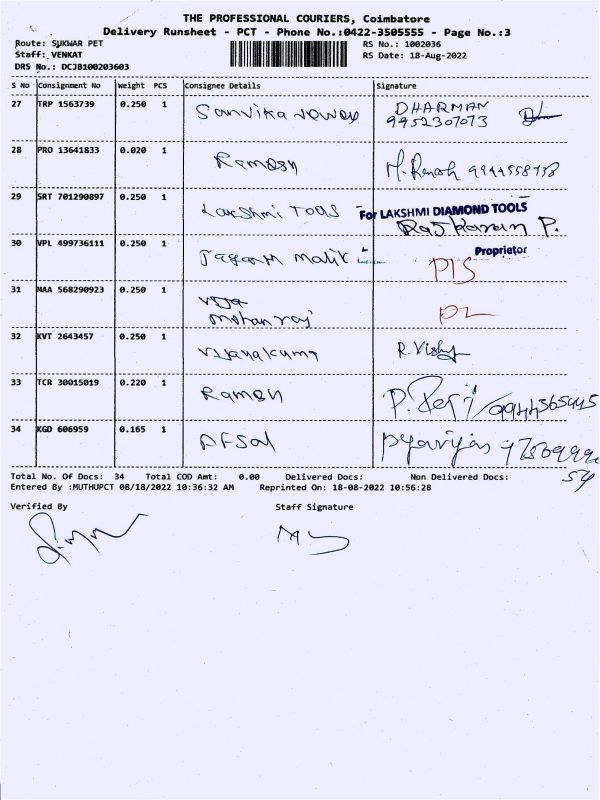 THE PROFESSIONAL COURIERS, Coimbatore
Delivery Runsheet - PCT - Phone No.:0422-3505555 - Page No.:3
Route: SUKWAR PET
RS No.: 1002036
Staff: VENKAT
RS Date: 18-Aug-2022
DRS No.: DCJB100203603
S No Consignment No Weight PCS Consignee Details Signature
27 TRP 1563739 0.250 1 Sanvika DHARMAN
9952307073
28 PRO 13641833 0.020 1 Ramesh M. Ramesh
29 SRT 701290897 0.250 1 Lakshmi Tools For LAKSHMI DIAMOND TOOLS
Rajkaran P.
Proprietor
30 VPL 499736111 0.250 1 Malik
31 MAA 568290923 0.250 1
mohan raj
32 KVT 2643457 0.250 1 Vijayakumar R. Vishy
33 TCR 30015019 0.220 1 Ramesh
34 KGD 606959 0.165 1 AFSAL
Total No. Of Docs: 34 Total COD Amt: 0.00 Delivered Docs: Non Delivered Docs:
Entered By :MUTHUPCT 08/18/2022 10:36:32 AM Reprinted On: 18-08-2022 10:56:28
Verified By Staff Signature